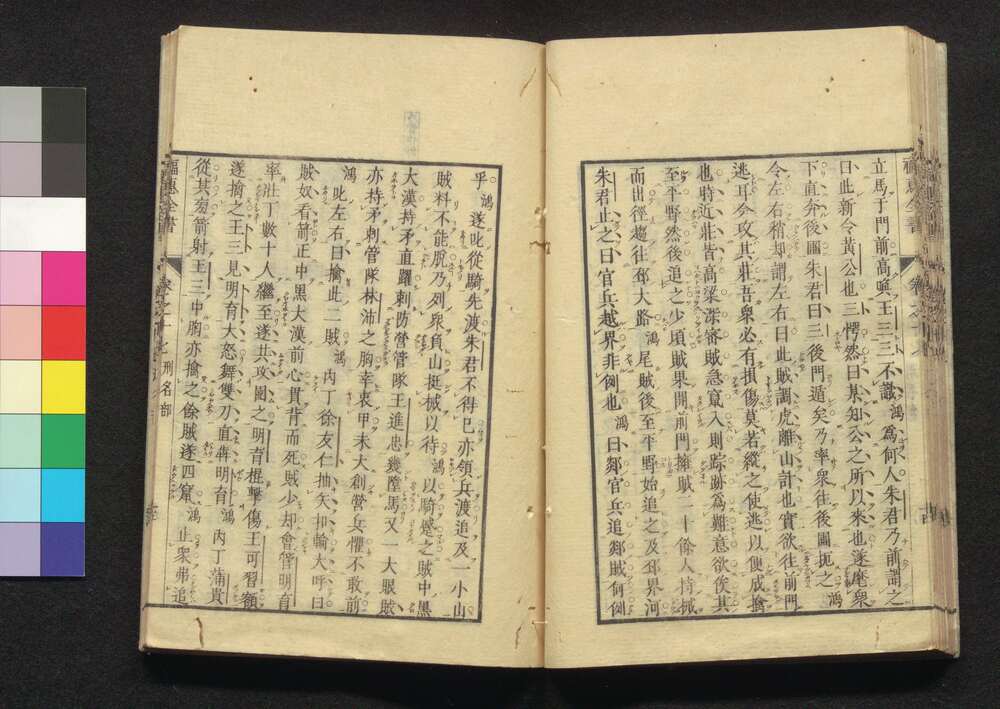 立馬于門前高喚王三三不識鴻爲何人朱君乃前謂之
曰此新令黃公也三愕然曰某知公之所以來也遂麾衆
下直奔後匾朱君曰三後門遁矣乃率衆往後圍扼之鴻
令左右稍却謂左右曰此賊調虎離山計也實欲往前門
逃耳今攻其莊吾衆必有損傷莫若縱之使逃以便成擒
也時近莊皆高梁深審賊急竄入則踪跡爲難意欲俟其
至平野然後追之少頃賊果開前門擁賊一十餘人持械
而出徑趨往郯大路鴻尾賊後至平野始追之及郯界河
朱君止之曰官兵越界非例也鴻曰郯官兵追郯賊何例
乎鴻遂叱從騎先渡朱君不得已亦領兵渡追及一小山
賊料不能脫乃列衆負山挺械以待鴻以騎蹙之賊中黑
大漢持矛直躍刺防營管隊王進忠幾墮馬又一大眼賊
亦持矛刺管隊林沛之胸幸衷甲未大創營兵懼不敢前
鴻叱左右曰擒此二賊鴻內丁徐友仁抽矢扣輪大呼曰
賊奴看箭正中黑大漢前心貫背而死賊少却會管明育
率壯丁數十人繼至遂共攻圍之明育棍擊傷王可習額
遂擒之王三見明育大怒舞雙刀直犇明育鴻內丁蒲貴
從其旁箭射王三中胸亦擒之餘賊遂四竄鴻止衆弗追
福惠全書
卷之十七 刑名部